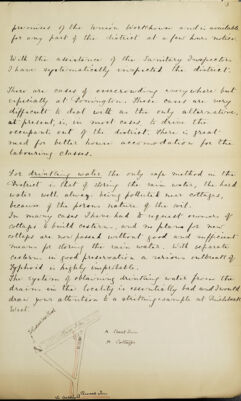 3
premises of the Union Workhouse and is available
for any part of the district at a few hours notice.
With the assistance of the Sanitary Inspector
I have systematically inspected the district.
There are cases of overcrowding everywhere but
especially at Donnington. These cases are very
difficult to deal with as the only alternative
at present, is, in most cases to drive the
occupants out of the district. There is great
need for better house accomodation for the
labouring classes.
For drinking water the only safe method in this
district is that of storing the rain water, the hard
water wells always being polluted near cottages,
because of the porous nature of the soil.
In many cases I have had to request owners of
cottages to build cisterns, and no plans for new
cottages are now passed without good and sufficient
means for storing the rain water. With separate
cisterns in good preservation a serious outbreak of
Typhoid is highly improbable.
The system of obtaining drinking water from the
drains in the locality is essentially bad and I would
draw your attention to a striking example at
West.
Inn
Cottages